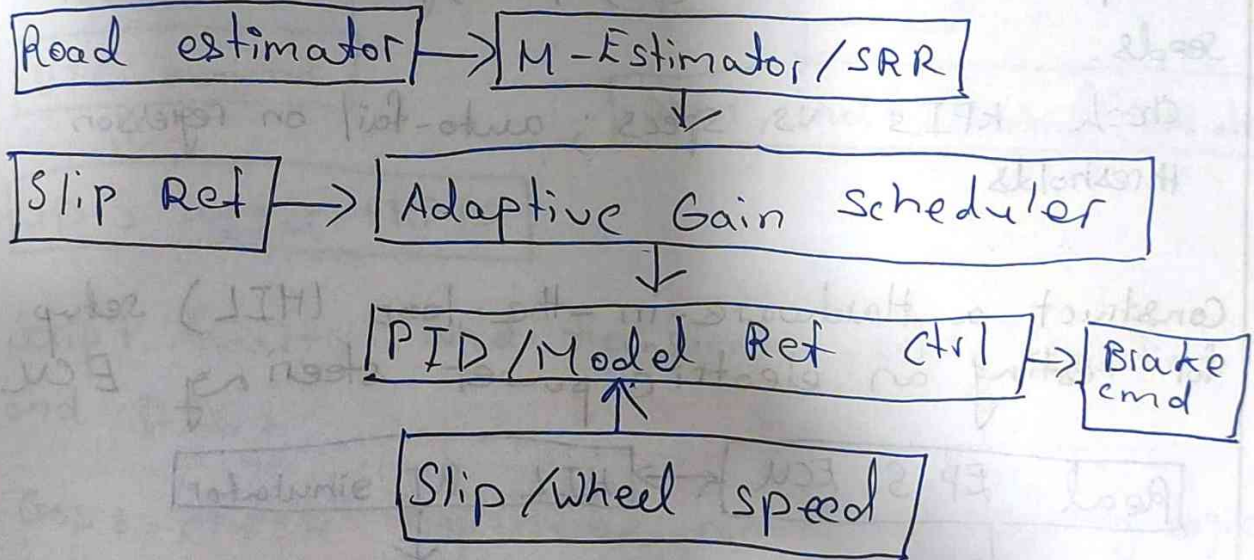 Road estimator → M-Estimator/SRR
↓
Slip Ref → Adaptive Gain scheduler
↓
PID/Model Ref Ctrl → Brake
cmd
↑
Slip/Wheel speed